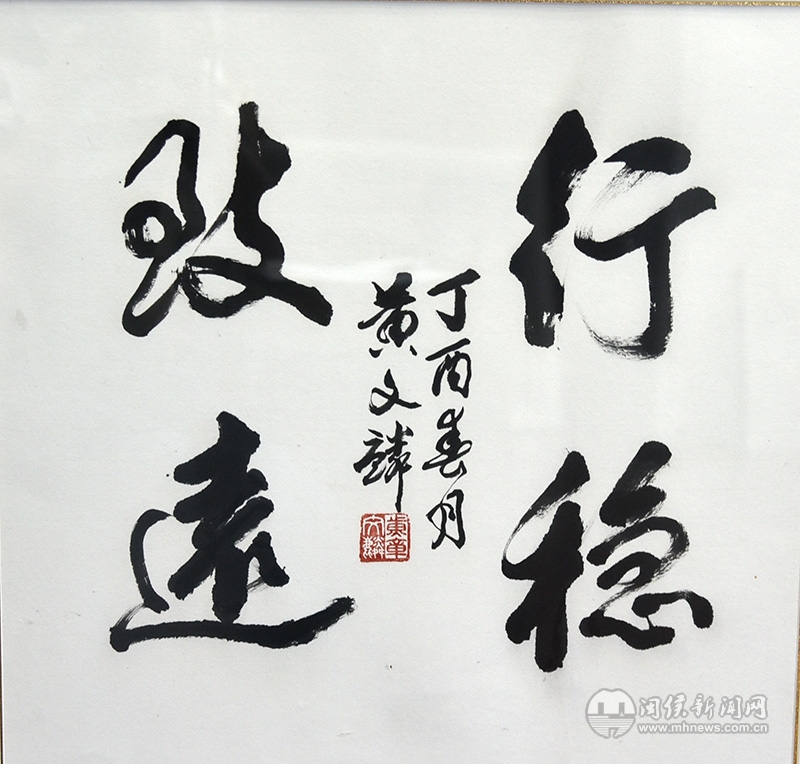 行稳
致遠
丁酉春月
黄文麟
黄文麟章
闽侯新闻网
www.mhnews.com.cn